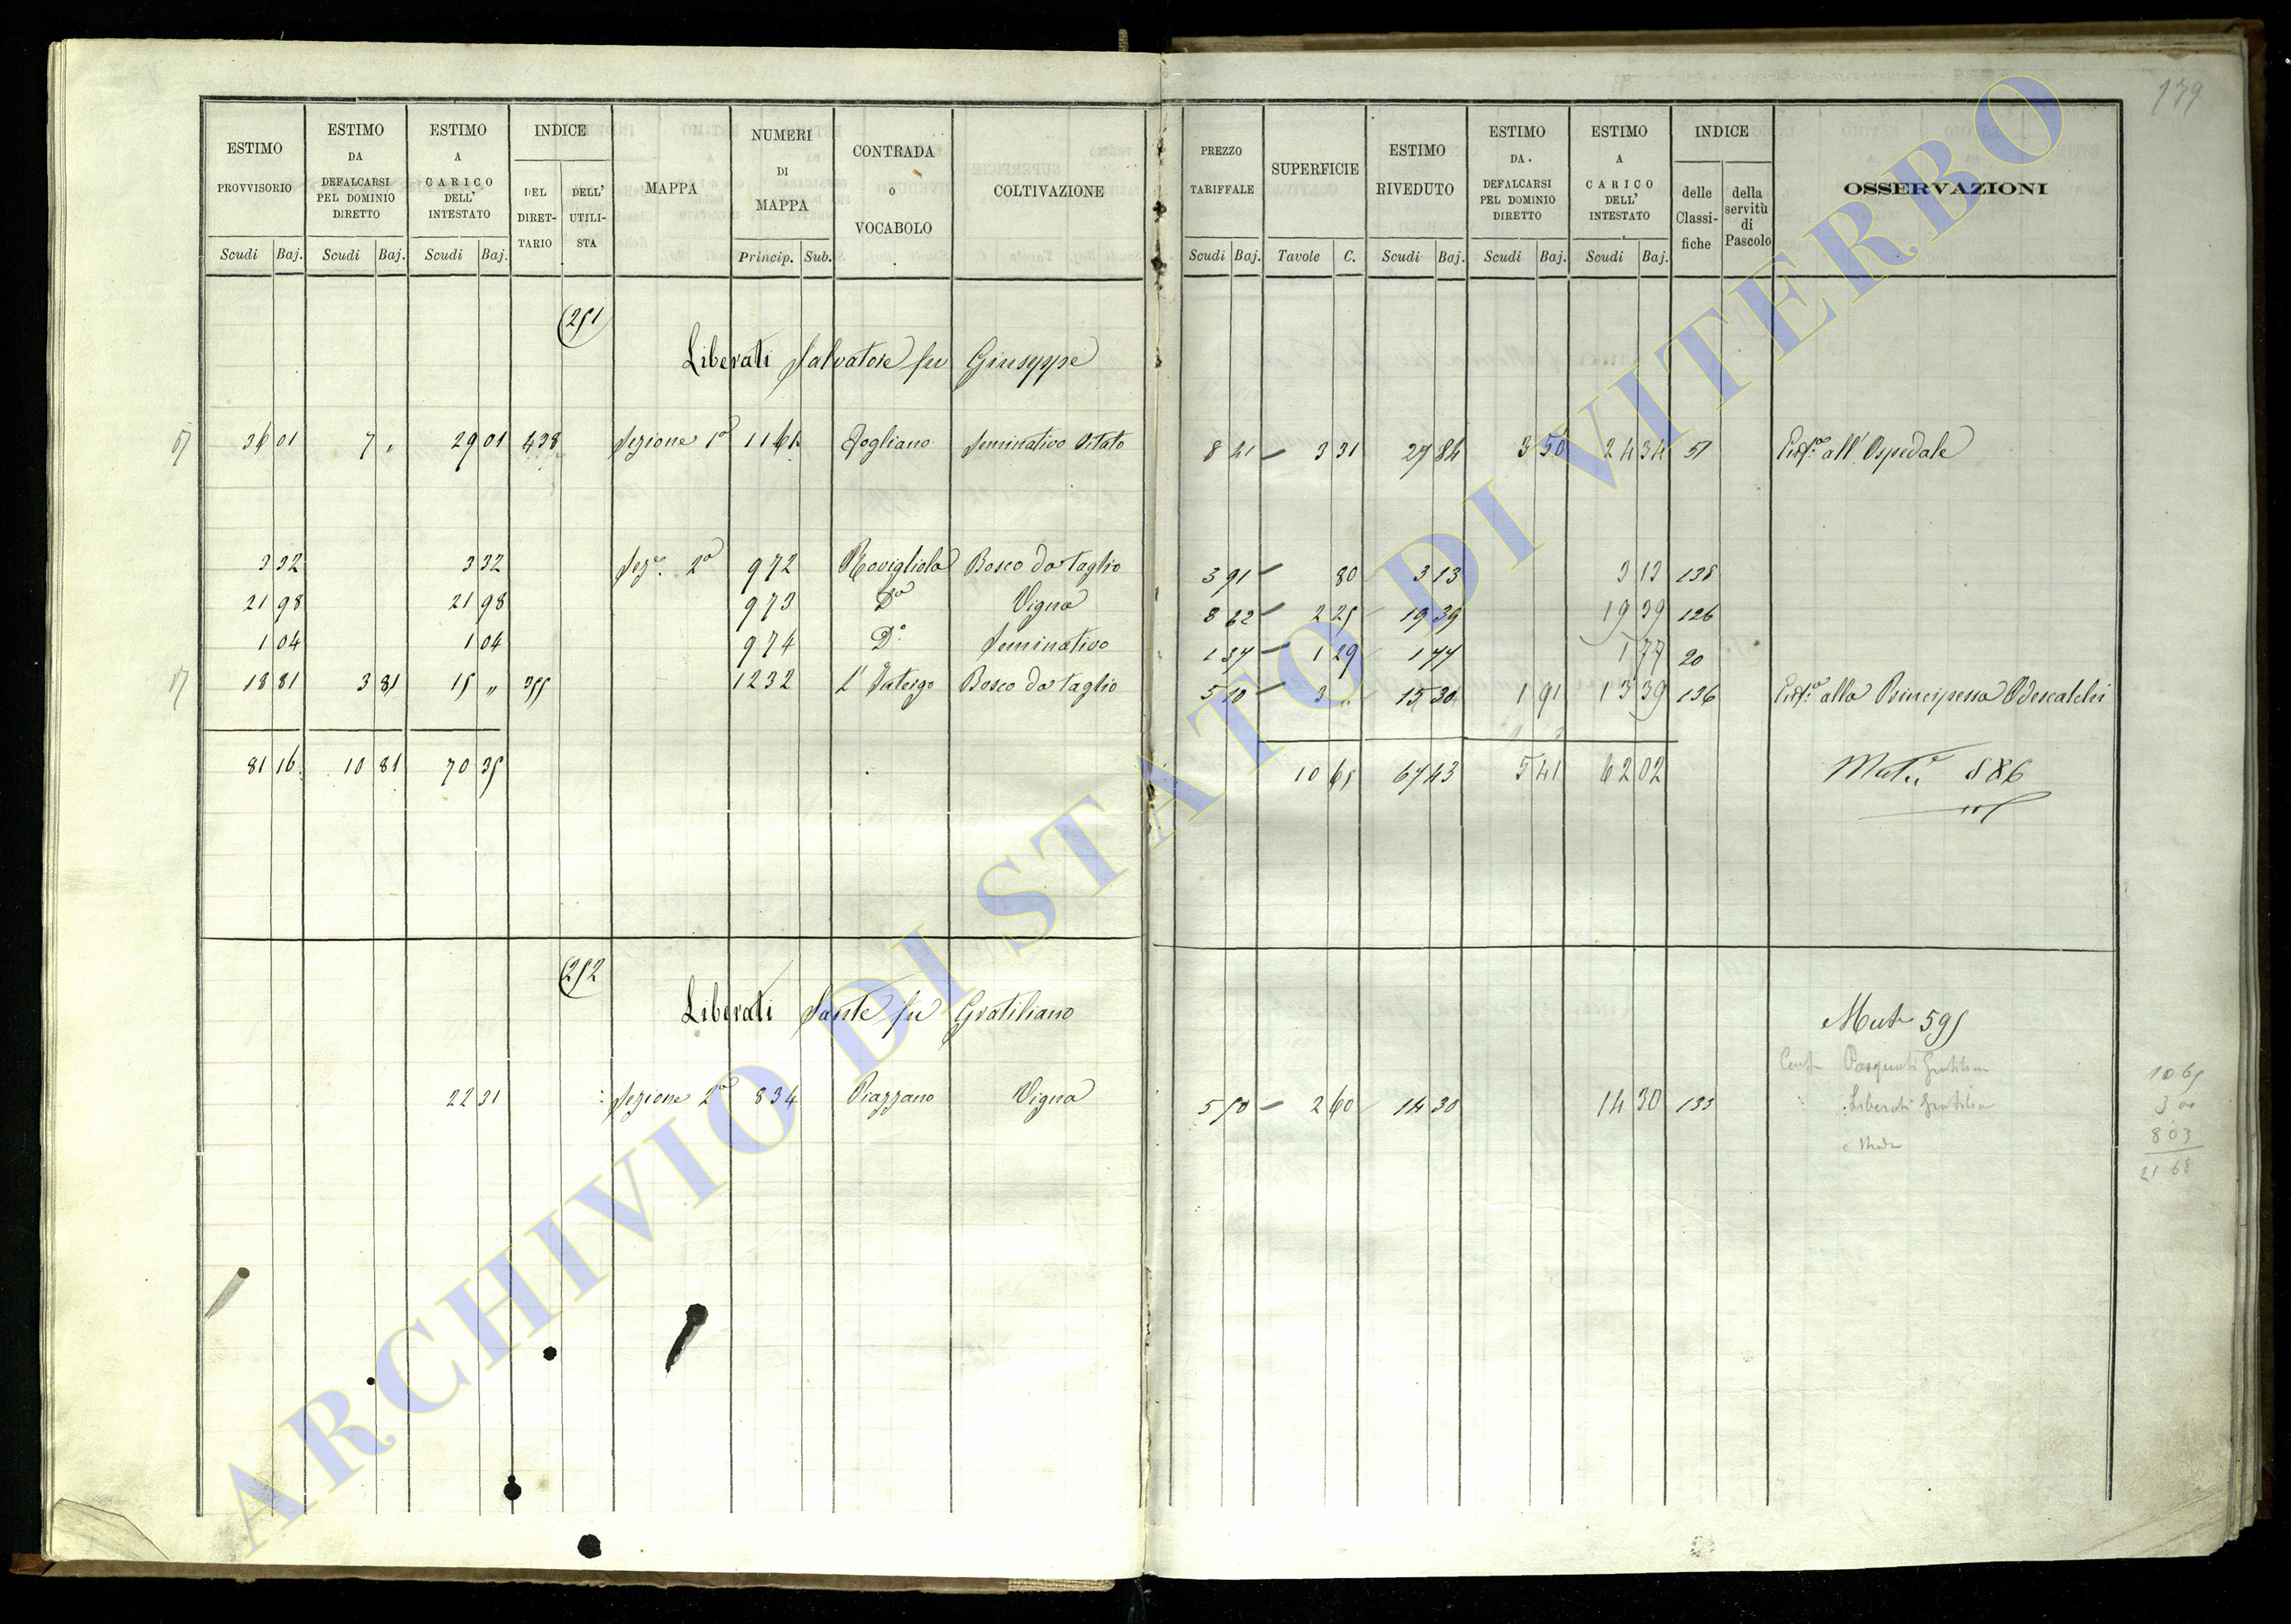 179
ESTIMO PROVVISORIO Scudi Baj.
ESTIMO DA DEFALCARSI PEL DOMINIO DIRETTO Scudi Baj.
ESTIMO A CARICO DELL' INTESTATO Scudi Baj.
INDICE DEL DIRET-TARIO DELL' UTILI-STA
MAPPA
NUMERI DI MAPPA Princip. Sub.
CONTRADA O VOCABOLO
COLTIVAZIONE
PREZZO TARIFFALE Scudi Baj.
SUPERFICIE Tavole C.
ESTIMO RIVEDUTO Scudi Baj.
ESTIMO DA DEFALCARSI PEL DOMINIO DIRETTO Scudi Baj.
ESTIMO A CARICO DELL' INTESTATO Scudi Baj.
INDICE delle Classi-fiche della servitù di Pascolo
OSSERVAZIONI
251
Liberati Salvatore fu Giuseppe
36 01 7 " 29 01 438 Sezione 1a 1161 Fogliano Seminativo Vitato 8 41 3 31 27 84 3 50 24 34 51 all'Ospedale
3 32 3 32 Seze. 2a 972 Rovigliola Bosco da taglio 3 91 80 3 13 3 13 138
21 98 21 98 973 Da Vigna 8 62 2 25 19 39 19 39 126
1 04 1 04 974 Do. Seminativo 1 37 1 29 1 77 1 77 20
18 81 3 81 15 " 355 1232 Bosco da taglio 5 10 3 " 15 30 1 91 13 39 136 alla Principessa Odescalchi
81 16 10 81 70 35 10 65 67 43 5 41 62 02 Mut. 886
252
Liberati Sante fu Gratiliano
Mut 595
Pasquali
22 31 Sezione 2a 834 Piazzano Vigna 5 50 2 60 14 30 14 30 133 Liberati
10 65
3 00
8 03
21 68
ARCHIVIO DI STATO DI VITERBO